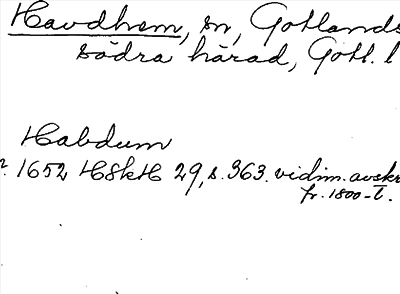 Havdhem, sn, Gotlands
södra härad, Gotl. l
Habdum
1652 HSkH 29, s. 363. vidim. avskr
fr. 1800-t.